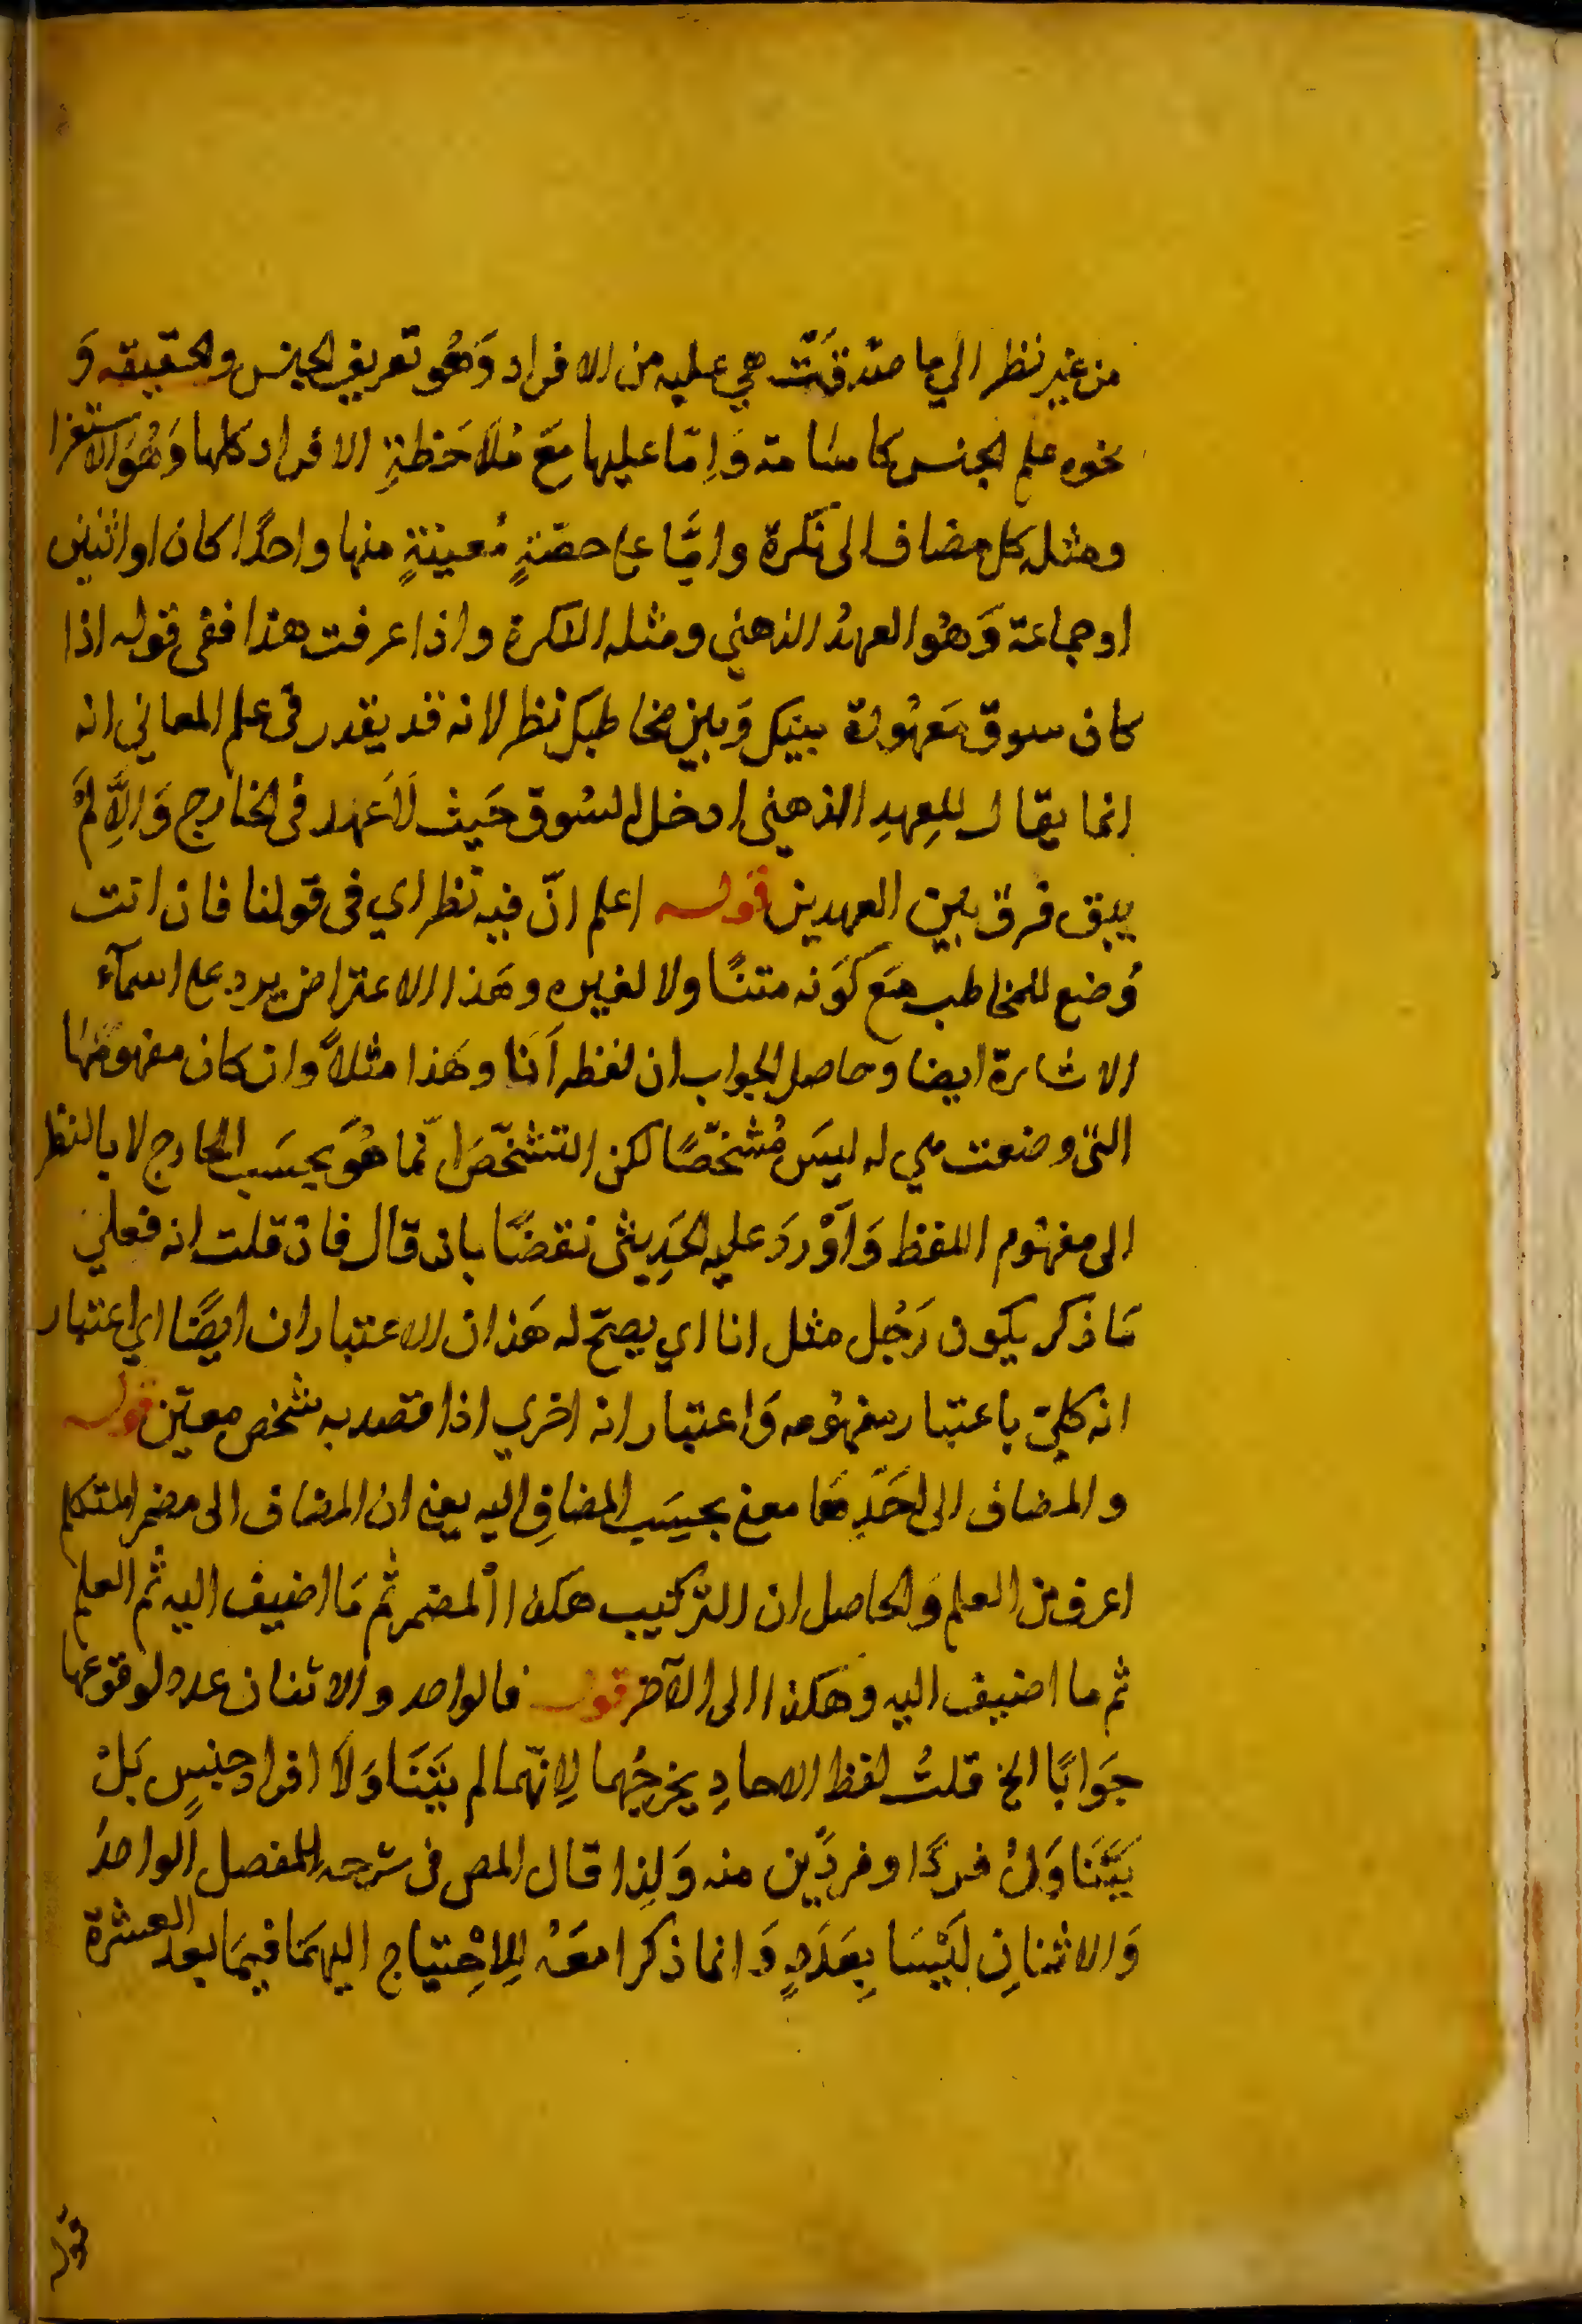 من غير نظر الي ما صدقت هي عليه من الافراد وَهُو تعريف الجنس والحقيقه وَ
نحوه علم الجنس كاسامة وَاِمّا عليها مَعَ مُلاَحَظةِ الافراد كلها وَهُوَ الاستغرا
ومثله كل مضاف الى نكرة واِمَّا على حصّةٍ مُعينةٍ منها واحدًا كان او اثنين
او جماعة وَهُو العهدُ الذهني ومثله النكرة واذا عرفت هذا ففى قوله اذا
كان سوق مَعهُودة بينك وَبين مخاطبك نظر لانه قد يقدر فى علم المعاني انه
انما يقال للِعهدِ الذهنى ادخل السُوق حَيث لاَعَهد فى الخارج وَاِلاَّ لَمْ
يبق فرق بين العهدين قوله اعلم انّ فيه نظر اي فى قولنا فان انت
وُضع للمخاطب مَع كَوْنه متنًا ولا لغيره وهَذا الاعتراض يرد على اسمآء
الاشارة ايضا وحاصل الجواب ان لفظه اَنَا وهَذا مثلاً وان كان مفهومُهَا
التى وضعت هي له ليسَ مُشخّصًا لكن التشخّصَ اِنّما هُوَ بحسَب الخارج لا بالنظر
الى مفهُوم اللفظ وَاَوْردَ عليه الحَدِيثى نقضًا بان قال فان قلت انه فعلي
مَا ذكر يكون رَجُل مثل انا اي يصحّ له هَذان الاعتباران ايضًا اي اعتبار
انه كليّ باعتبار مفهُومه وَاعتبار انه اخري اذا قصد به شخص معيّن قوله
والمضاف الى احَدِهَا معنى بحسَب المضافِ اليه يعنى ان المضاف الى مضمر المتكلم
اعرف من العلم وَالحاصل ان التركيب هكذا المضمر ثم مَا اضيف اليه ثم العلم
ثم ما اضيف اليه وهكذا الى الآخر قوله فالواحد والاثنان عدد لوقوعها
جَوَابًا الخ قلتُ لفظ الاحادِ يخرجُهما لِانّهما لم يتَنَاوَلاَ افراد جنسٍ بَلْ
يَتَنَاوَلُ فردًا وفردَين منه وَلِذا قال المص فى شرحه للمفصل الواحدُ
وَالاثنانِ لَيْسَا بِعَدَدٍ وَانما ذكرا معَهُ لِلاِحْتياج اليهمَا فيمَا بعد العشرة
قوله